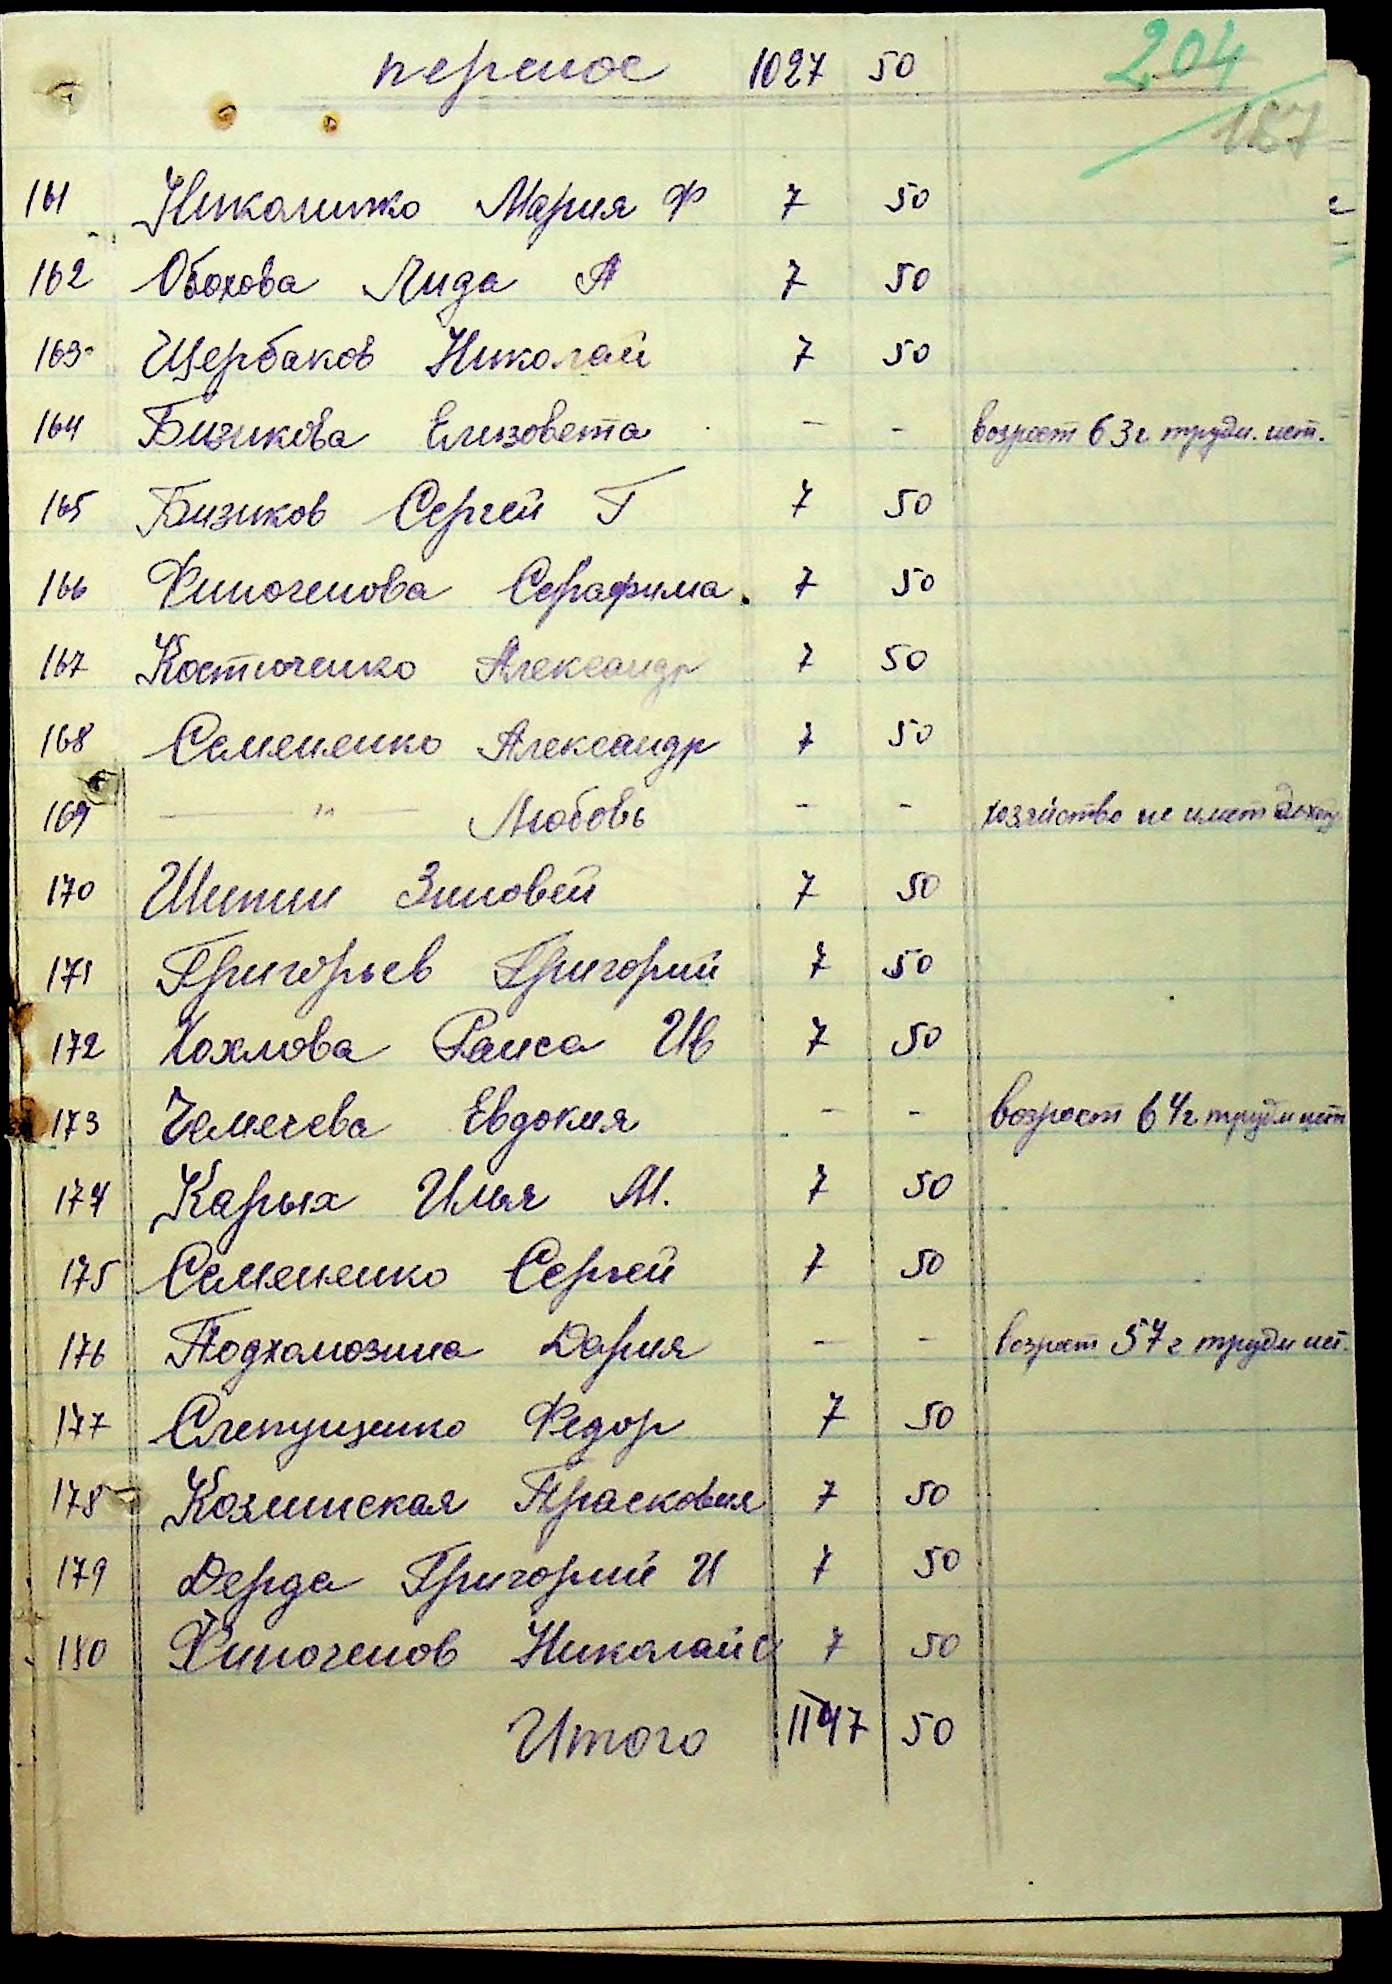 перенос 1027 50 204
187
161 Николишко Мария Ф 7 50
162 Обохова Лида А 7 50
163 Щербаков Николай 7 50
164 Бизикова Елизовета - - возрост 63 г трудн. нет.
165 Бизиков Сергей Г 7 50
166 Финогенова Серафима. 7 50
167 Костюченко Александр 7 50
168 Семененко Александр 7 50
169 — " — Любовь - - хозяйство не имет доход
170 Шипин Зиновей 7 50
171 Григорьев Григорий 7 50
172 Хохлова Раиса Ив 7 50
173 Чемечева Евдокия - - возрост 64 г трудн нет
174 Карых Илья М. 7 50
175 Семененко Сергей 7 50
176 Подхомозина Дария - - возрост 57 г трудн нет.
177 Слепущенко Федор 7 50
178 Козминская Прасковия 7 50
179 Дерда Григорий И 7 50
180 Финогенов Николай С 7 50
Итого 1147 50